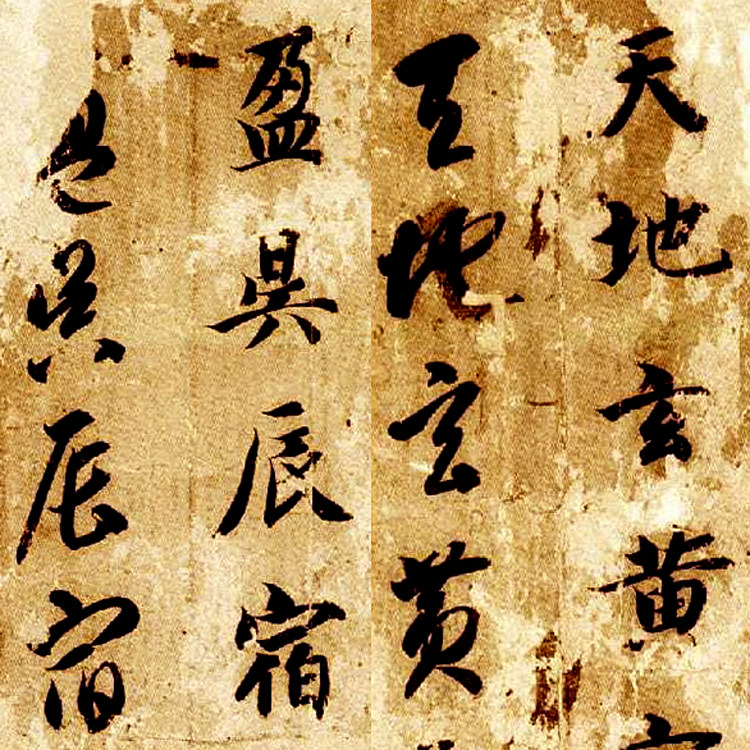 天地玄黄
天地玄黄
盈昃辰宿
盈昃辰宿